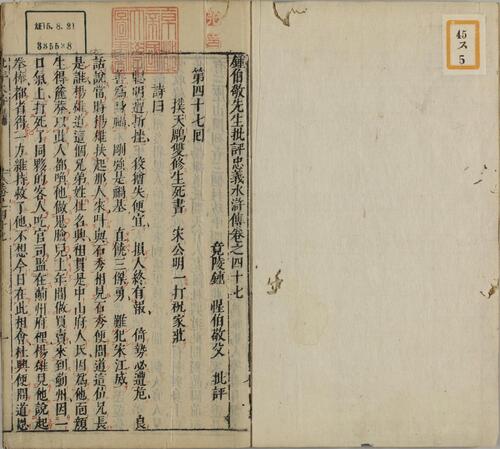 45
ス
5
鍾伯敬先生批評忠義水滸傳卷之四十七
竟陵鍾 惺伯敬父 批評
第四十七回
撲天鵰雙修生死書 宋公明一打祝家莊
詩曰
聰明遭折挫 狡獪失便宜 損人終有報 倚勢必遭危 良
善為身福 剛強是禍基 直饒三傑勇 難犯宋江威
話說當時楊雄扶起那人來叫與石秀相見石秀便問道這位兄長
是誰楊雄道這個兄弟姓杜名興祖貫是中山府人氏因為他面顏
生得麄莽以此人都喚他做鬼臉兒上年間做買賣來到薊州因一
口氣上打死了同夥的客人吃官司監在薊州府裡楊雄見他說起
拳棒都省得一方維持救了他不想今日在此相會杜興便問道恩
昭15. 8. 21